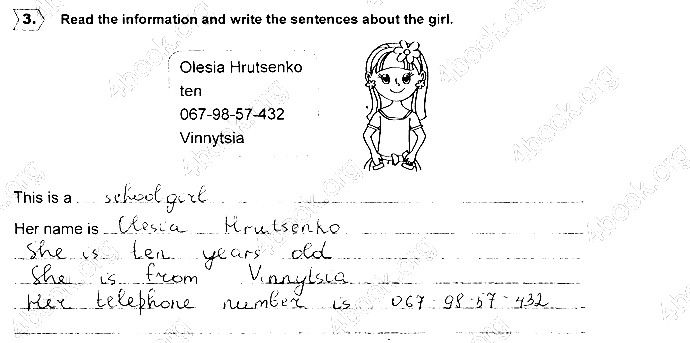 3. Read the information and write the sentences about the girl.
Olesia Hrutsenko
ten
067-98-57-432
Vinnytsia
This is a schoolgirl
Her name is Olesia Hrutsenko
She is ten years old
She is from Vinnytsia
Her telephone number is 067-98-57-432
4book.org
4book.org
4book.org
4book.org
4book.org
4book.org
4book.org